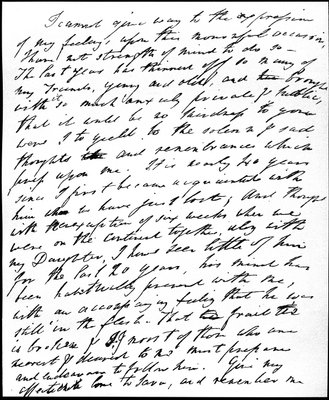 I cannot give way to the expression
of my feelings upon this mournful occasion
I have not strength of mind to do so —
The last year has thinned off so many of
my Friends, young and old, and brought
with it so much anxiety private & public,
that it would be no kindness to you
were I to yield to the solemn & sad
thoughts and remembrances which
press upon me. It is nearly 40 years
since I first became acquainted with
him whom we have just lost; and though
with the exception of six weeks when we
were on the continent together, along with
my Daughter, I have seen little of him
for the last 20 years, his mind has
been habitually present with me,
with an accompanying feeling that he was
still in the flesh. That frail tie
is broken & I, & most of those who are
nearest & dearest to me must prepare
and endeavour to follow him. Give my
affectionate love to Sara, and remember me